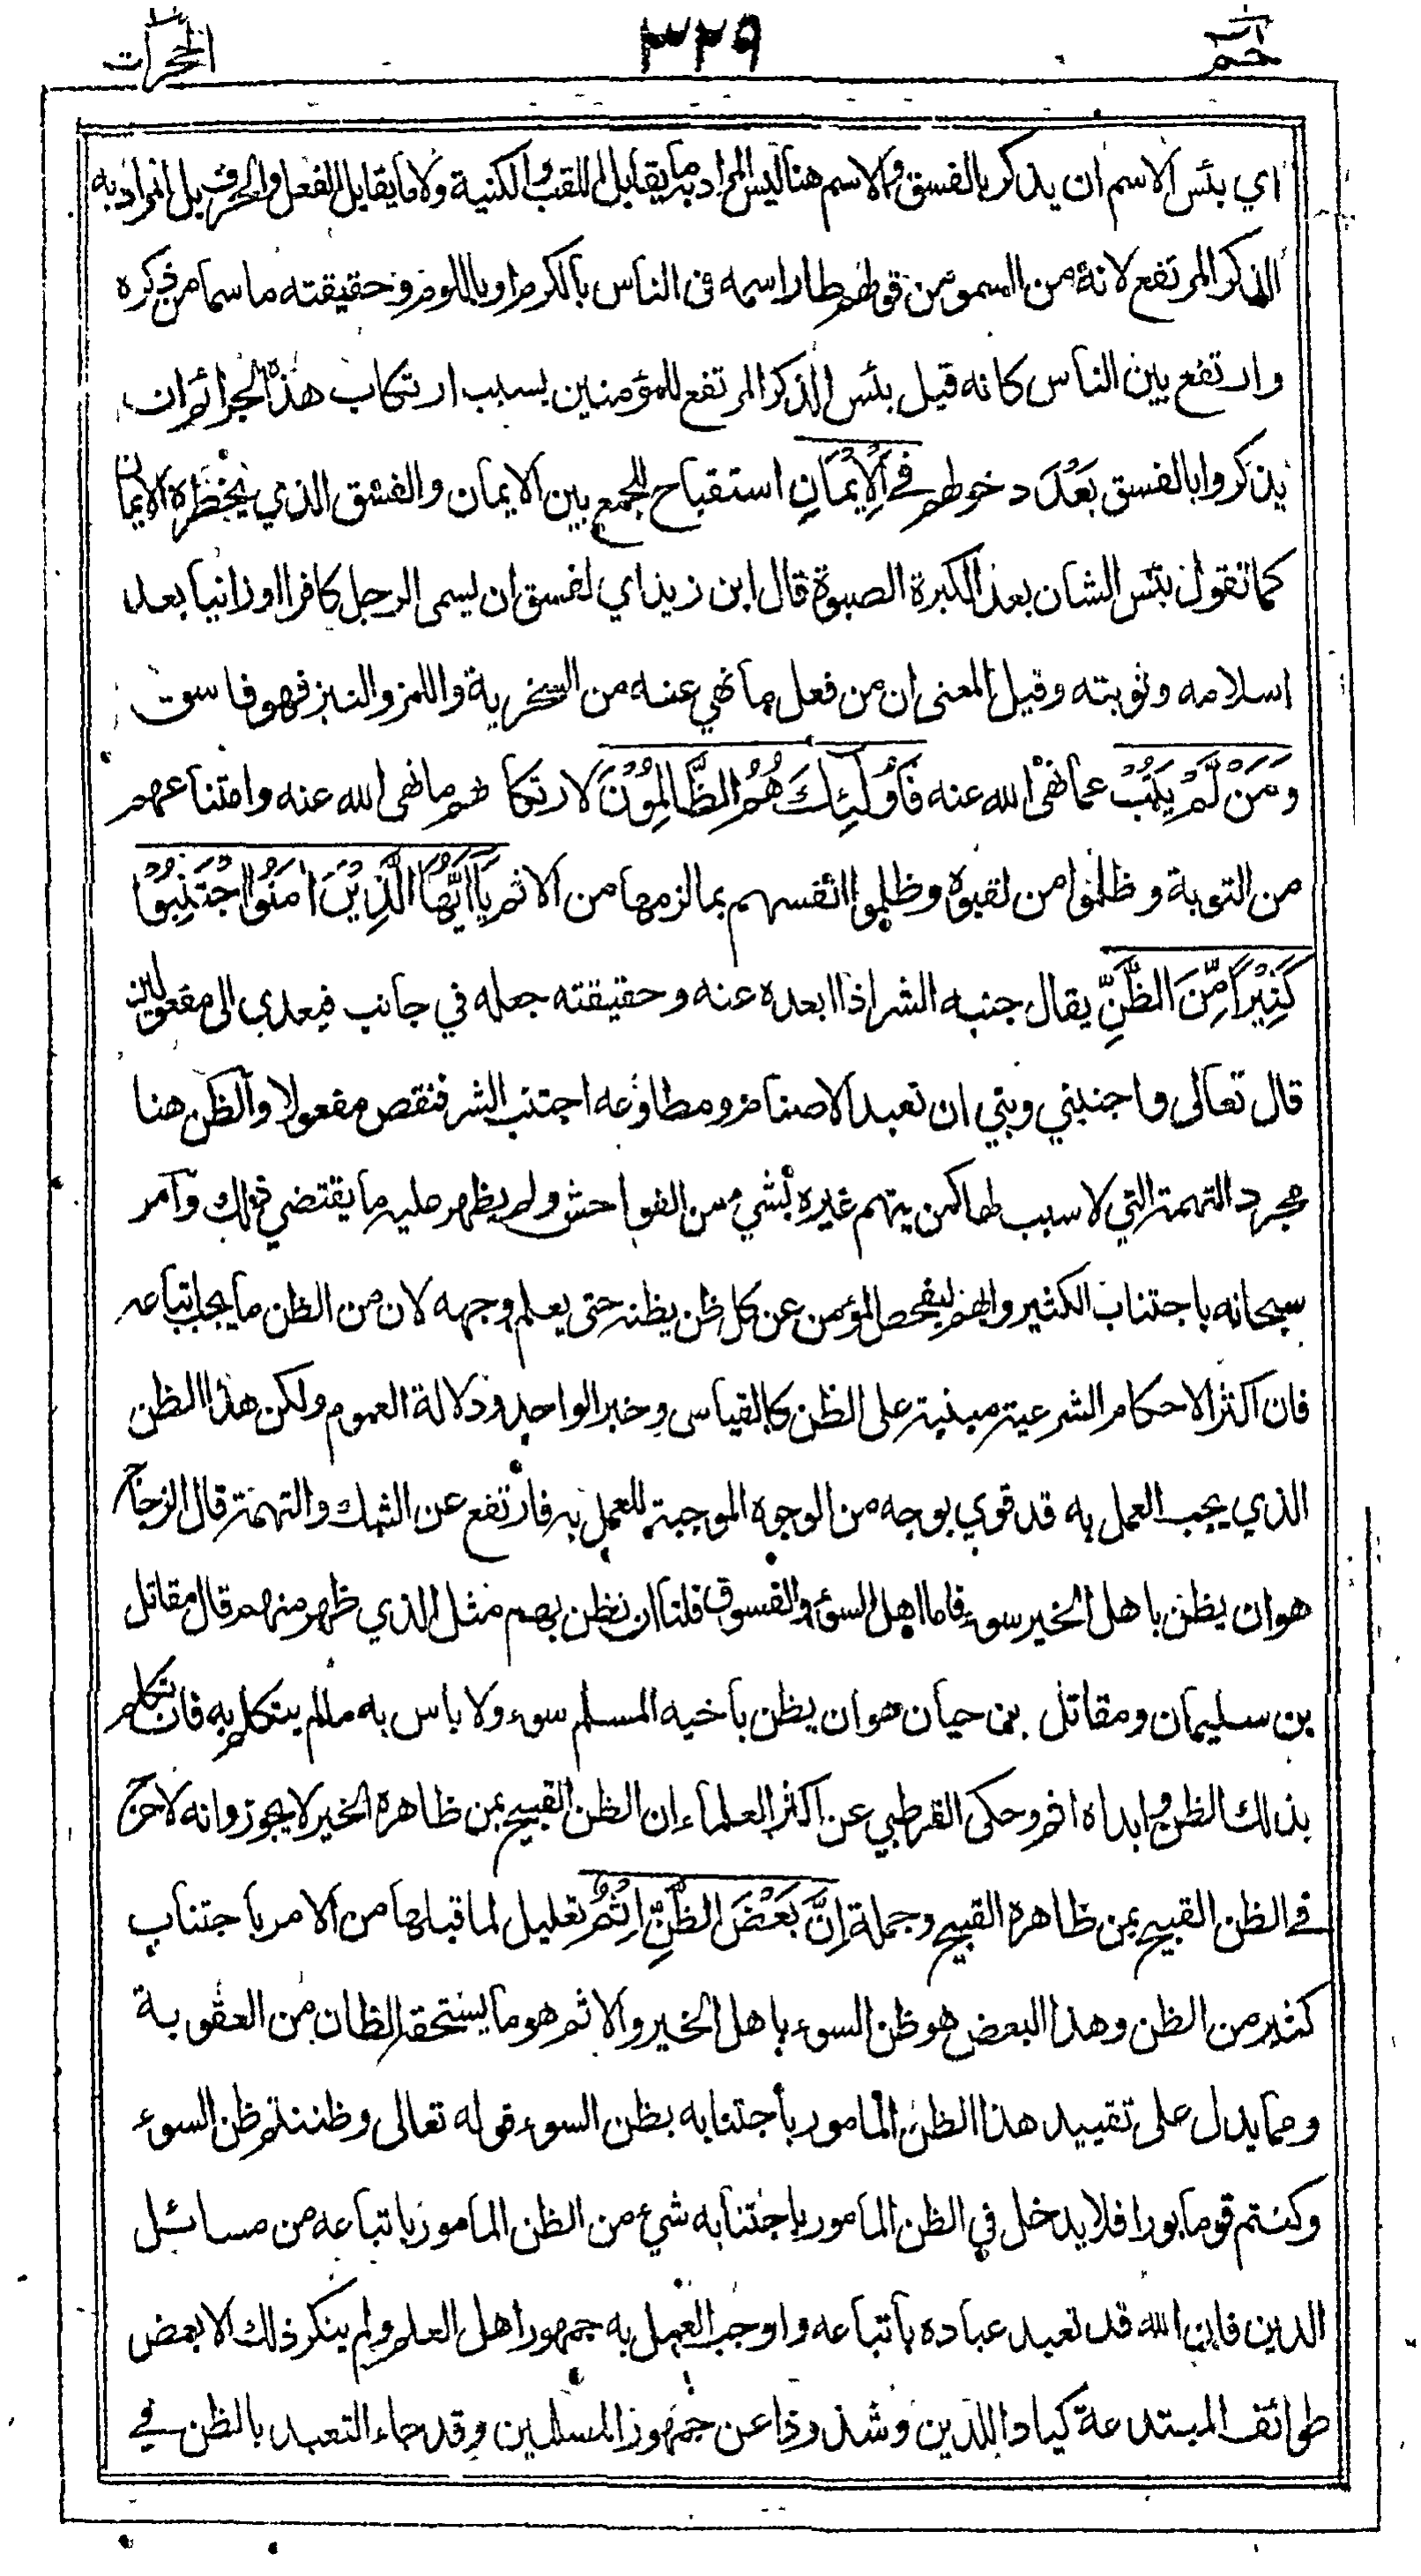 حم
٣٢٩
الحجرات
اي بئس الاسم ان يذكر بالفسق والاسم هنا ليس المراد به ما يقابل اللقب والكنية ولا ما يقابل الفعل والحرف بل المراد به
الذكر المرتفع لانه من السمو من قولهم طار اسمه في الناس بالكرم او باللوم وحقيقته ما سما من ذكره
وارتفع بين الناس كانه قيل بئس الذكر المرتفع للمؤمنين بسبب ارتكاب هذه الجرائم ان
يذكروا بالفسق بَعْدَ دخولهم فِي الْاِيْمَانِ استقباح للجمع بين الايمان والفسق الذي يحظره الايمان
كما تقول بئس الشان بعد الكبرة الصبوة قال ابن زيد اي لفسق ان يسمى الرجل كافرا او زانيا بعد
اسلامه وتوبته وقيل المعنى ان من فعل ما نهي عنه من السخرية واللمز والنبز فهو فاسق
وَمَنْ لَّمْ يَتُبْ عما نهى الله عنه فَاُولٰٓئِكَ هُمُ الظَّالِمُوْنَ لارتكابهم ما نهى الله عنه وامتناعهم
من التوبة وظلموا من لقبوه وظلموا انفسهم بما لزمها من الاثم يَا اَيُّهَا الَّذِيْنَ اٰمَنُوا اجْتَنِبُوْا
كَثِيْرًا مِّنَ الظَّنِّ يقال جنبه الشر اذا ابعده عنه وحقيقته جعله في جانب فيعدى الى مفعولين
قال تعالى واجنبني وبني ان نعبد الاصنام ومطاوعه اجتنب الشر فنقص مفعولا والظن هنا
مجرد التهمة التي لا سبب لها كمن يتهم غيره بشي من الفواحش ولم يظهر عليه ما يقتضي ذلك وامر
سبحانه باجتناب الكثير وابهم ليفحص المؤمن عن كل ظن يظنه حتى يعلم وجهه لان من الظن ما يجب اتباعه
فان اكثر الاحكام الشرعية مبنية على الظن كالقياس وخبر الواحد ودلالة العموم ولكن هذا الظن
الذي يجب العمل به قد قوي بوجه من الوجوه الموجبة للعمل به فارتفع عن الشك والتهمة قال الزجاج
هو ان يظن باهل الخير سوء فاما اهل السوء والفسوق فلنا ان نظن بهم مثل الذي ظهر منهم قال مقاتل
بن سليمان ومقاتل بن حيان هو ان يظن باخيه المسلم سوء ولا باس به ما لم يتكلم به فان تكلم
بذلك الظن وابداه اثم وحكى القرطبي عن اكثر العلماء ان الظن القبيح بمن ظاهره الخير لا يجوز وانه لا حرج
في الظن القبيح بمن ظاهره القبيح وجملة اِنَّ بَعْضَ الظَّنِّ اِثْمٌ تعليل لما قبلها من الامر باجتناب
كثير من الظن وهذا البعض هو ظن السوء باهل الخير والاثم هو ما يستحقه الظان من العقوبة
ومما يدل على تقييد هذا الظن المامور باجتنابه بظن السوء قوله تعالى وظننتم ظن السوء
وكنتم قوما بورا فلا يدخل في الظن المامور باجتنابه شيء من الظن المامور باتباعه من مسائل
الدين فان الله قد تعبد عباده باتباعه واوجب العمل به جمهور اهل العلم ولم ينكر ذلك الا بعض
طوائف المبتدعة كيادا للدين وشذوذا عن جمهور المسلمين وقد جاء التعبد بالظن في